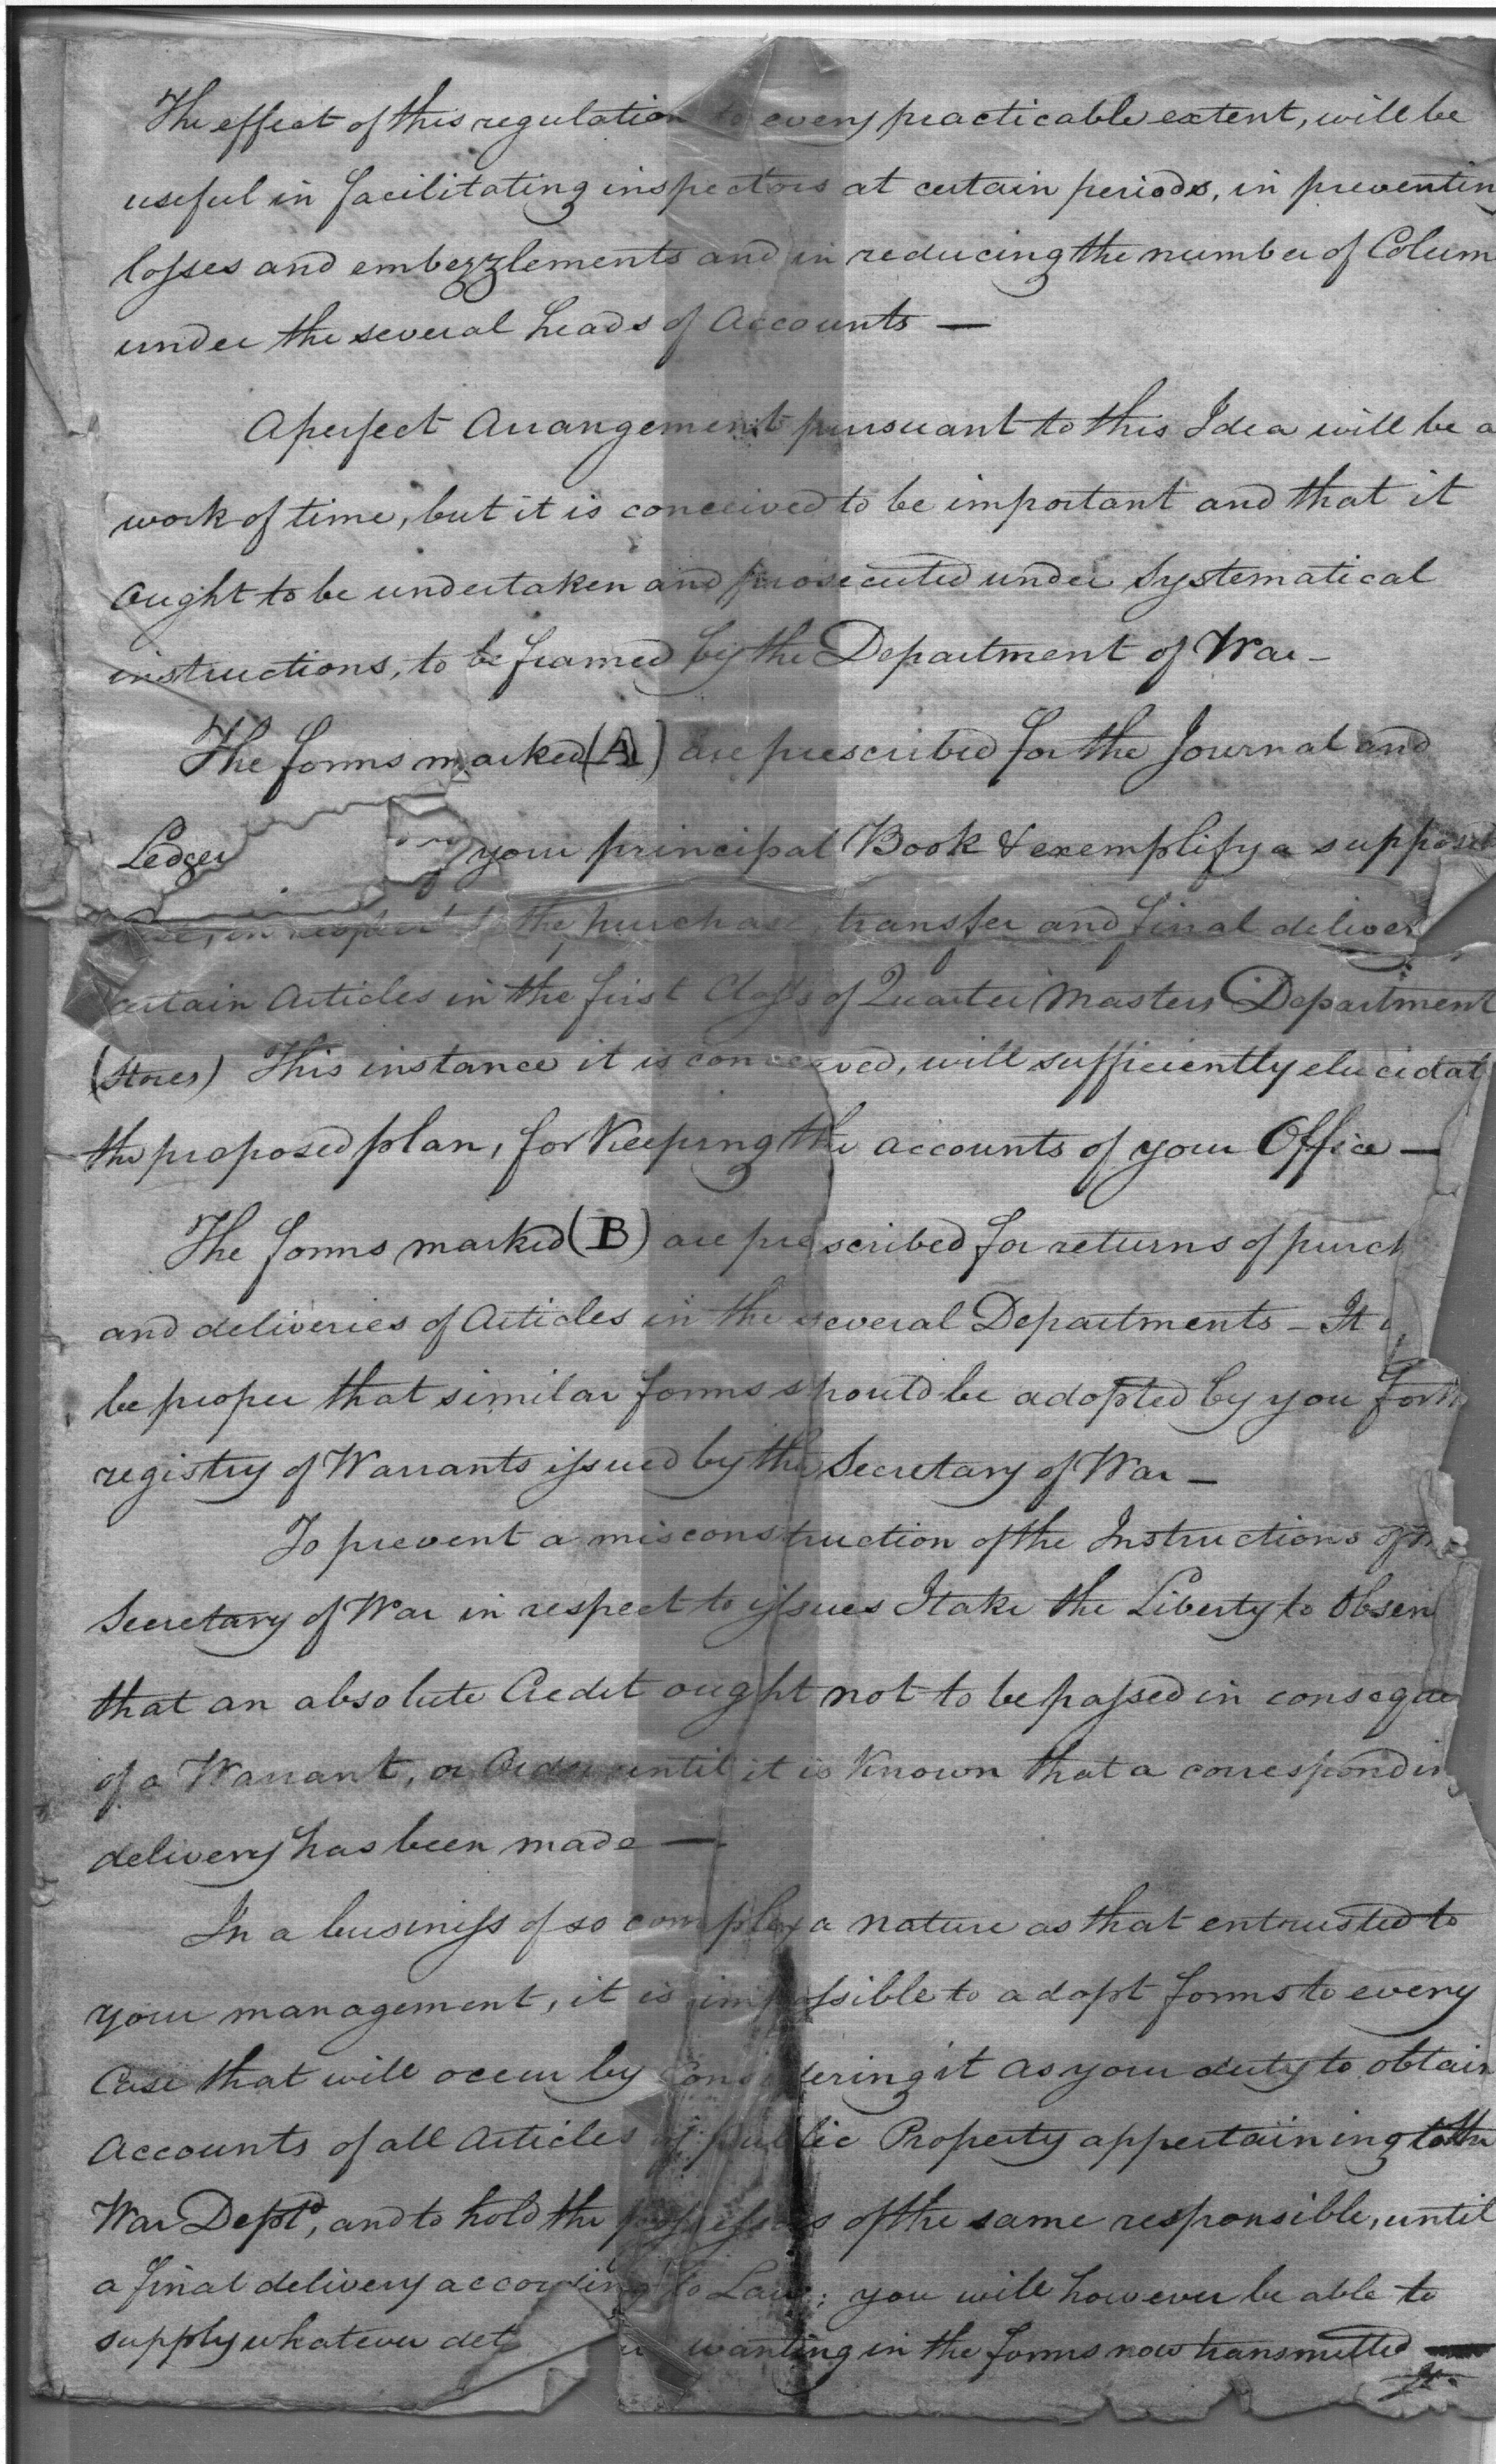 The effect of this regulation to every practicable extent, will be
useful in facilitating inspectors at certain periods, in preventin
losses and embezzlements and in reducing the number of Colum
under the several heads of Accounts —
A perfect Arrangement pursuant to this Idea will be a
work of time, but it is conceived to be important and that it
Ought to be undertaken and prosecuted under Systematical
instructions, to be framed by the Department of War -
The forms marked (A) are prescribed for the Journal and
Ledger your principal Book & exemplify a suppos
Case, in respect to the purchase, transfer and final deliver
certain Articles in the first Class of Quarter Masters Department
(Stores) This instance it is conceived, will sufficiently elucidat
the proposed plan, for Keeping the accounts of your Office —
The forms marked (B) are prescribed for returns of purch
and deliveries of Articles in the several Departments - It
be proper that similar forms should be adopted by you for
registry of Warrants issued by the Secretary of War —
To prevent a misconstruction of the Instructions of
Secretary of War in respect to issues I take the Liberty to Obser
that an absolute Credit ought not to be passed in conseque
of a Warrant, or Order until it is Known that a correspondin
delivery has been made —
In a business of so complex a nature as that entrusted to
your management, it is impossible to adopt forms to every
Case that will occur by Considering it as your duty to obtain
Accounts of all Articles of Public Property appertaining to the
War Deptd, and to hold the possessors of the same responsible, until
a final delivery according to Law; you will however be able to
supply whatever det wanting in the forms now transmitted —